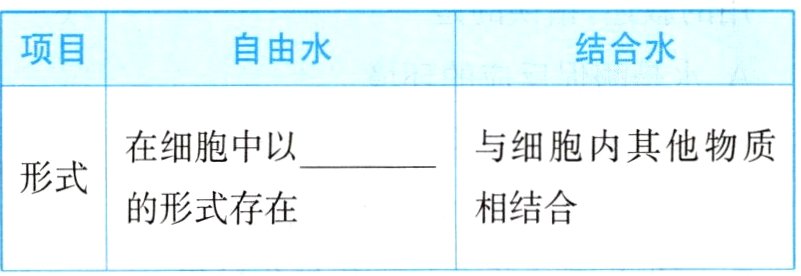 项目 自由水 结合水
在细胞中以________ 与细胞内其他物质
形式
的形式存在 相结合